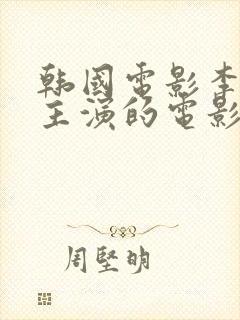 韩國電影李
主演的電影
周堅明